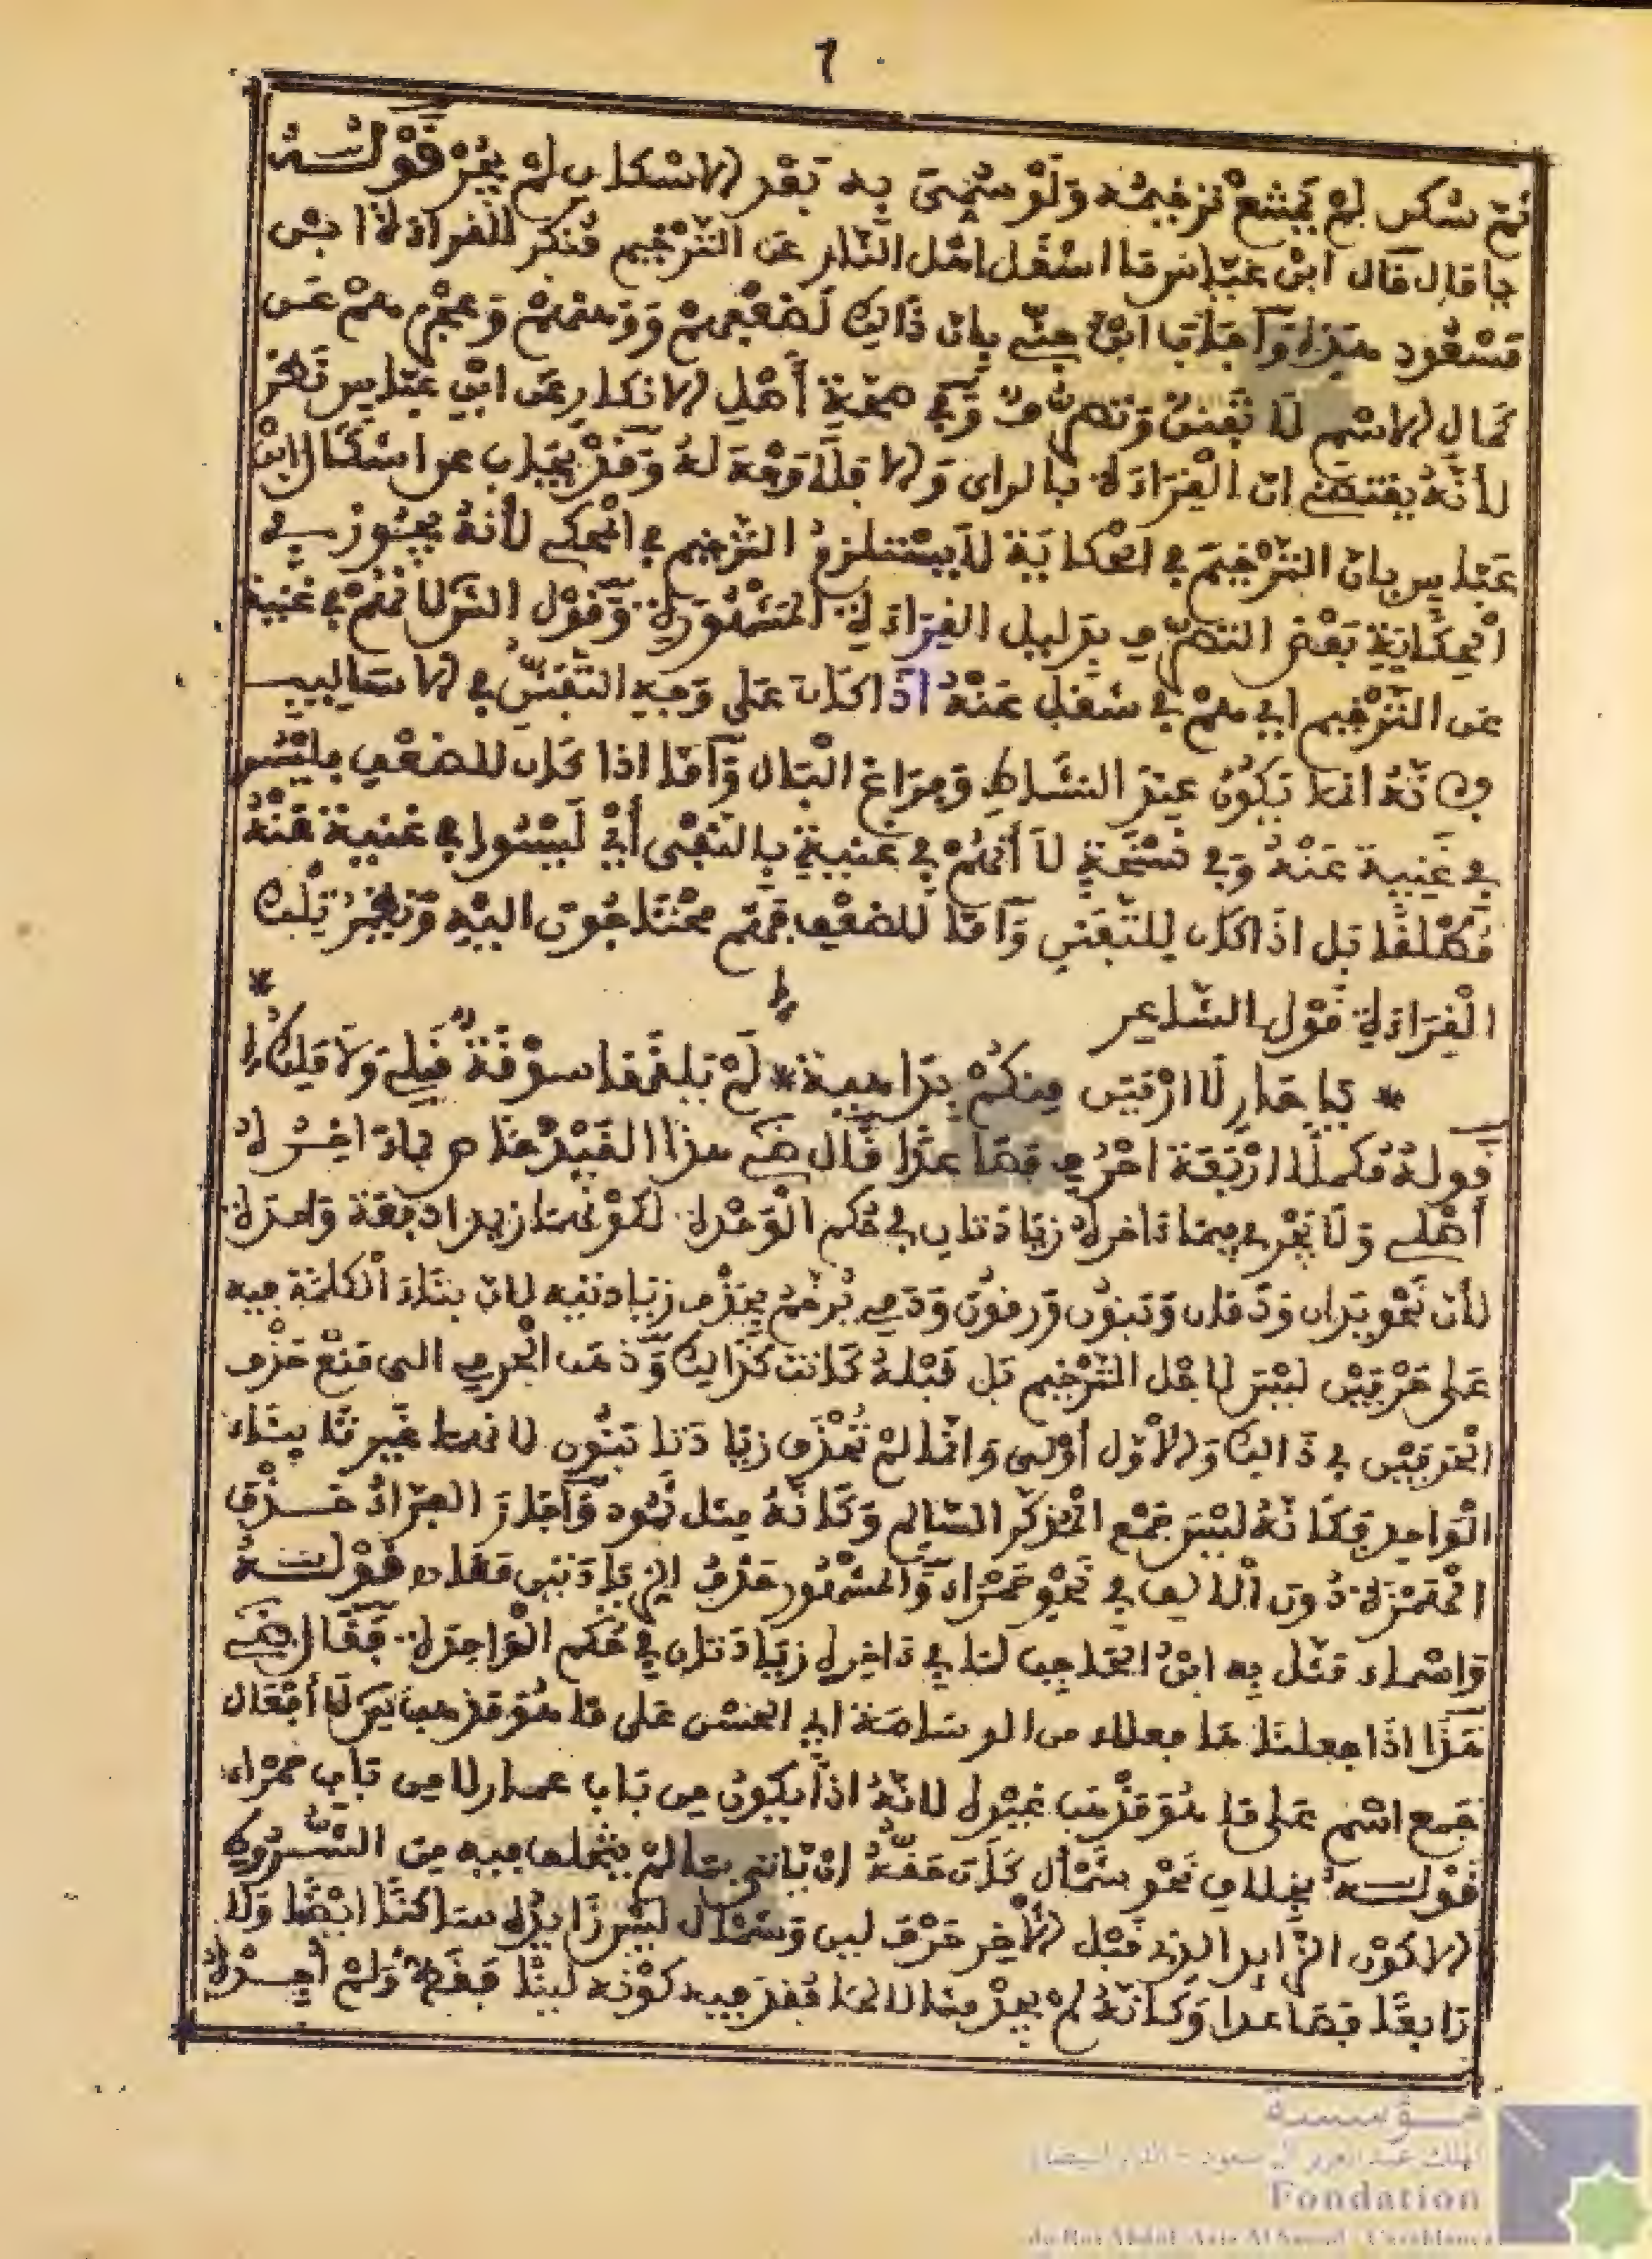 7
ثم سكن لم يمتنع ترخيمه ولو سمي به بعد الاسكان لم يجز قوله
قال ابن عباس ما اشغل اهل النار عن الترخيم منكر للقراءة ابن
مسعود هذه واجاب ابن جني بان ذالك لضعفهم ووهنهم وعجزهم عن
كمال الاسم لا تفننٌ وتصرفٌ وفي صحة أهل الانكار عن ابن عباس نظر
لأنه يقتضي ان القراءة بالراي والا فلا وجه له وقد يجاب عن اشكال ابن
عباس بان الترخيم في الحكاية لا يستلزم الترخيم في المحكي لأنه يجوز في
الحكاية بعض التصرف بدليل القراءة المشهورة وقول انهم في غنية
عن الترخيم اي هم في شغل عنه اذا كان على وجه التفنن في الاساليب
فانه انما يكون عند النشاط وفراغ البال وأما اذا كان للضعف فليسوا
في غنية عنه وفي نسخة لا أنهم في غنية بالنفى أي ليسوا في غنية عنه
مطلقا بل اذا كان للتفنن وأما للضعف فهم محتاجون اليه ونظير تلك
القراءة قول الشاعر
* يا حار لا ارمين منكم بداهية * لم يلقها سوقة قبلي ولا ملك *
قوله مكملا اربعة احرف فصاعدا قال هذا القيد خاص بما اخره
أصلي ولا يجري فيما ءاخره زيادتان في حكم الوحدة لكونهما زيدا دفعة واحدة
لأن نحو يدان ودمان وبنون يرخم بحذف زيادتيه لان بناء الكلمة فيه
على حرفين ليس لاجل الترخيم بل قبله كانت كذالك وذهب الجرمي الى منع حذف
الحرفين في ذالك والاول أولى وانما لم تحذف زيادتا بنون لانهما غير بناء
الواحد فكانه ليس جمع المذكر السالم وكانه مثل ثمود وأجاز الفراء حذف
الهمزة دون الالف في نحو حمراء والمشهور حذف الزيادتين معا قوله
واسماء مثل به ابن الحاجب لما في ءاخره زيادتان في حكم الواحدة فقال
هذا اذا جعلنا فعلاء من الوسامة اي الحسن على ما هو مذهب لا أفعال
جمع اسم على ما هو مذهب غيره لانه اذاً يكون من باب عمار لا من باب حمراء
قوله بخلاف نحو شمأل كان حقه ان ياتي بما لم يتخلف فيه من الشروط
الا كون الزايد الذي قبل الاخر حرف لين وشمأل ليس زايده ساكنا ايضا ولا
رابعا فصاعدا وكانه لم يجد مثالا لما فقد فيه كونه لينا فقط ولم أجده
مؤسسة
الملك عبد العزيز آل سعود - الدار البيضاء
Fondation
du Roi Abdul-Aziz Al Saoud - Casablanca